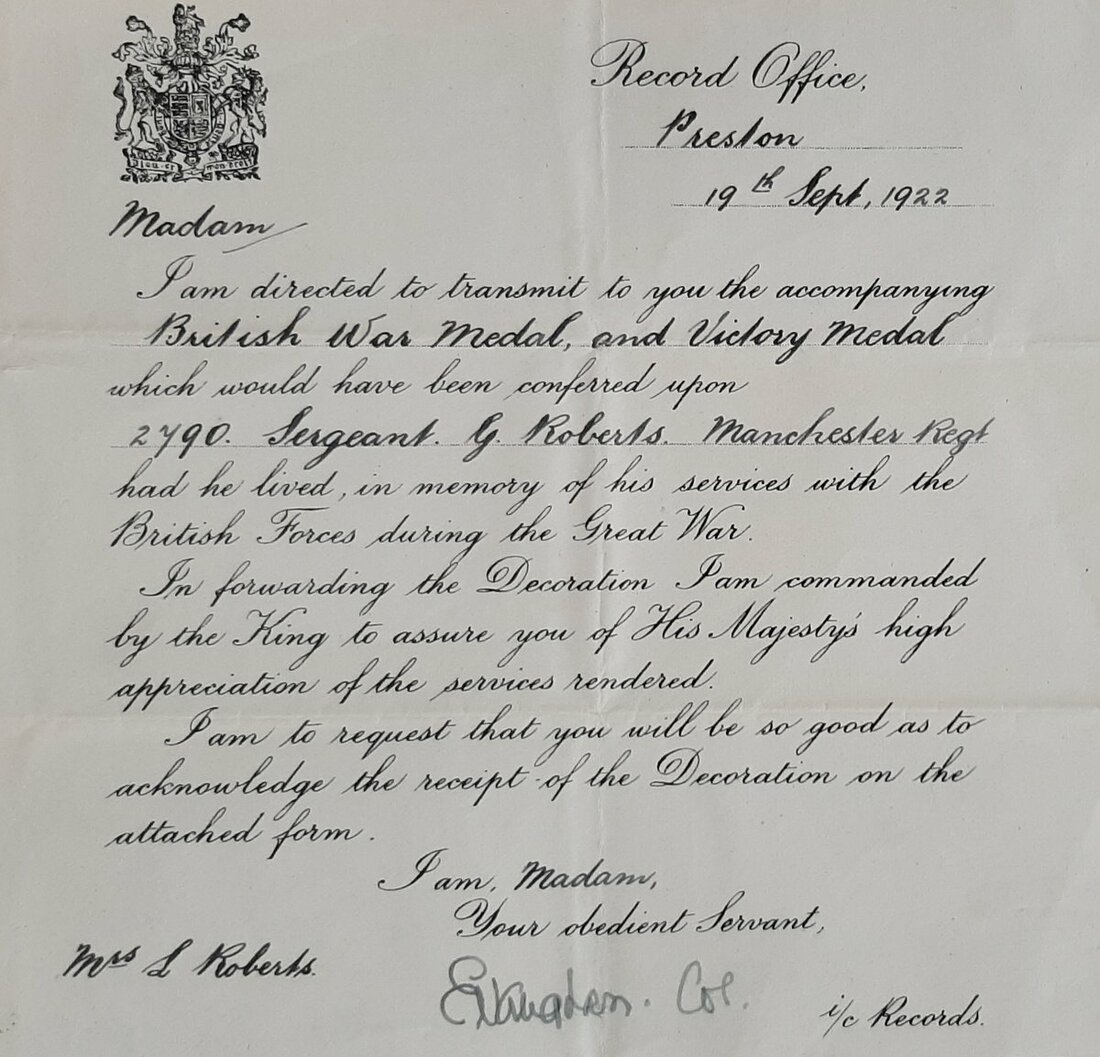 Record Office,
Preston
19th Sept, 1922
Madam
I am directed to transmit to you the accompanying
British War Medal, and Victory Medal
which would have been conferred upon
2790. Sergeant. G. Roberts. Manchester Regt
had he lived, in memory of his services with the
British Forces during the Great War.
In forwarding the Decoration I am commanded
by the King to assure you of His Majesty's high
appreciation of the services rendered.
I am to request that you will be so good as to
acknowledge the receipt of the Decoration on the
attached form.
I am, Madam,
Your obedient Servant,
Mrs L Roberts.
Col.
i/c Records.